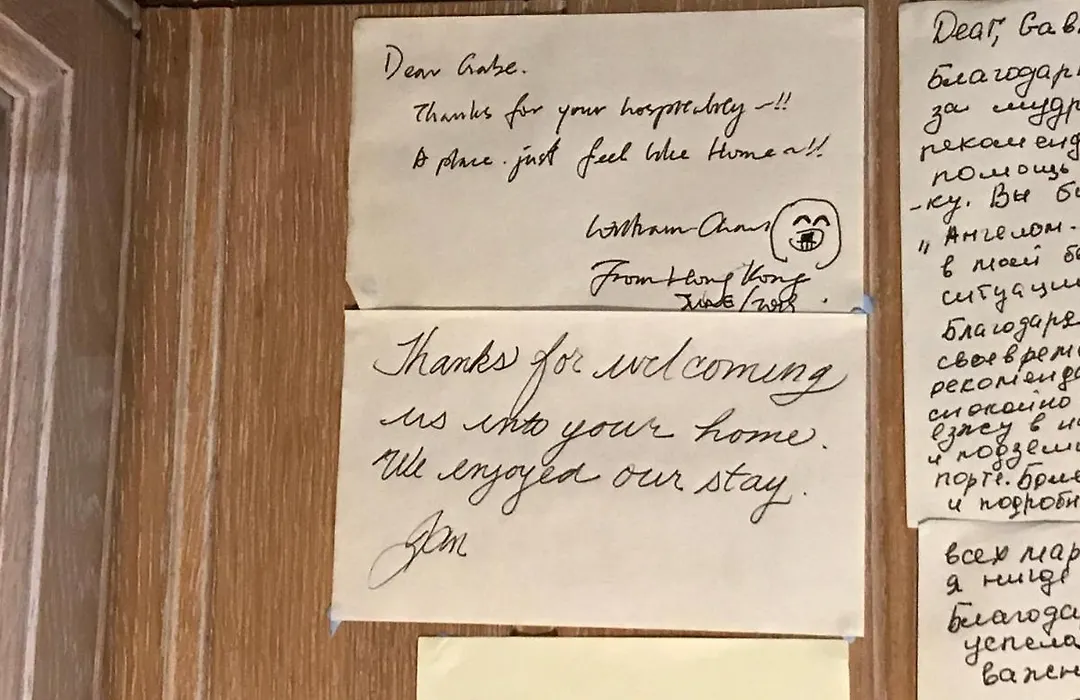 Dear Gabe.
Thanks for your hospitality ~!!
A place. just feel like Home ~!!
William
From Hong Kong
Thanks for welcoming
us into your home.
We enjoyed our stay.
Jan
Dear, Gab
Благодар
за мудр
рекоменд
помощь
-ку. Вы бы
„Ангелом-
в моей бе
ситуации
Благодаря
своеврем
рекоменда
спокойно
езжу в
и подзем
порте. Боле
и подробн
всех мар
я нигде
Благода
успела
важн